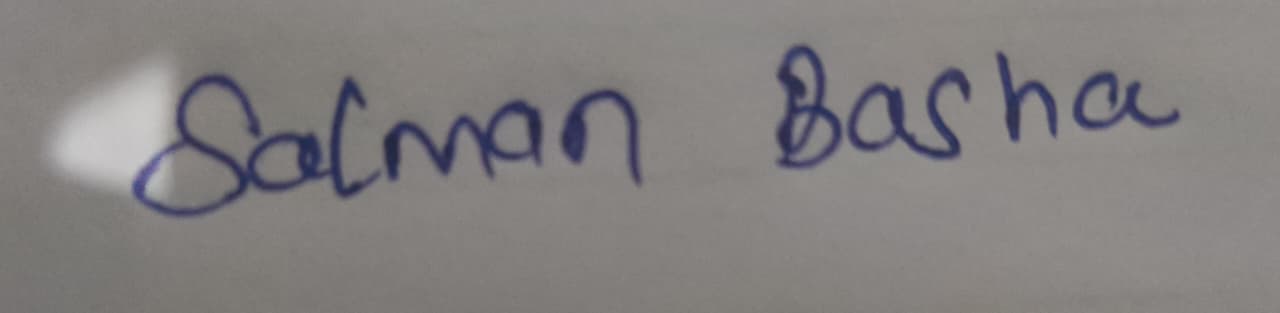 Salman Basha